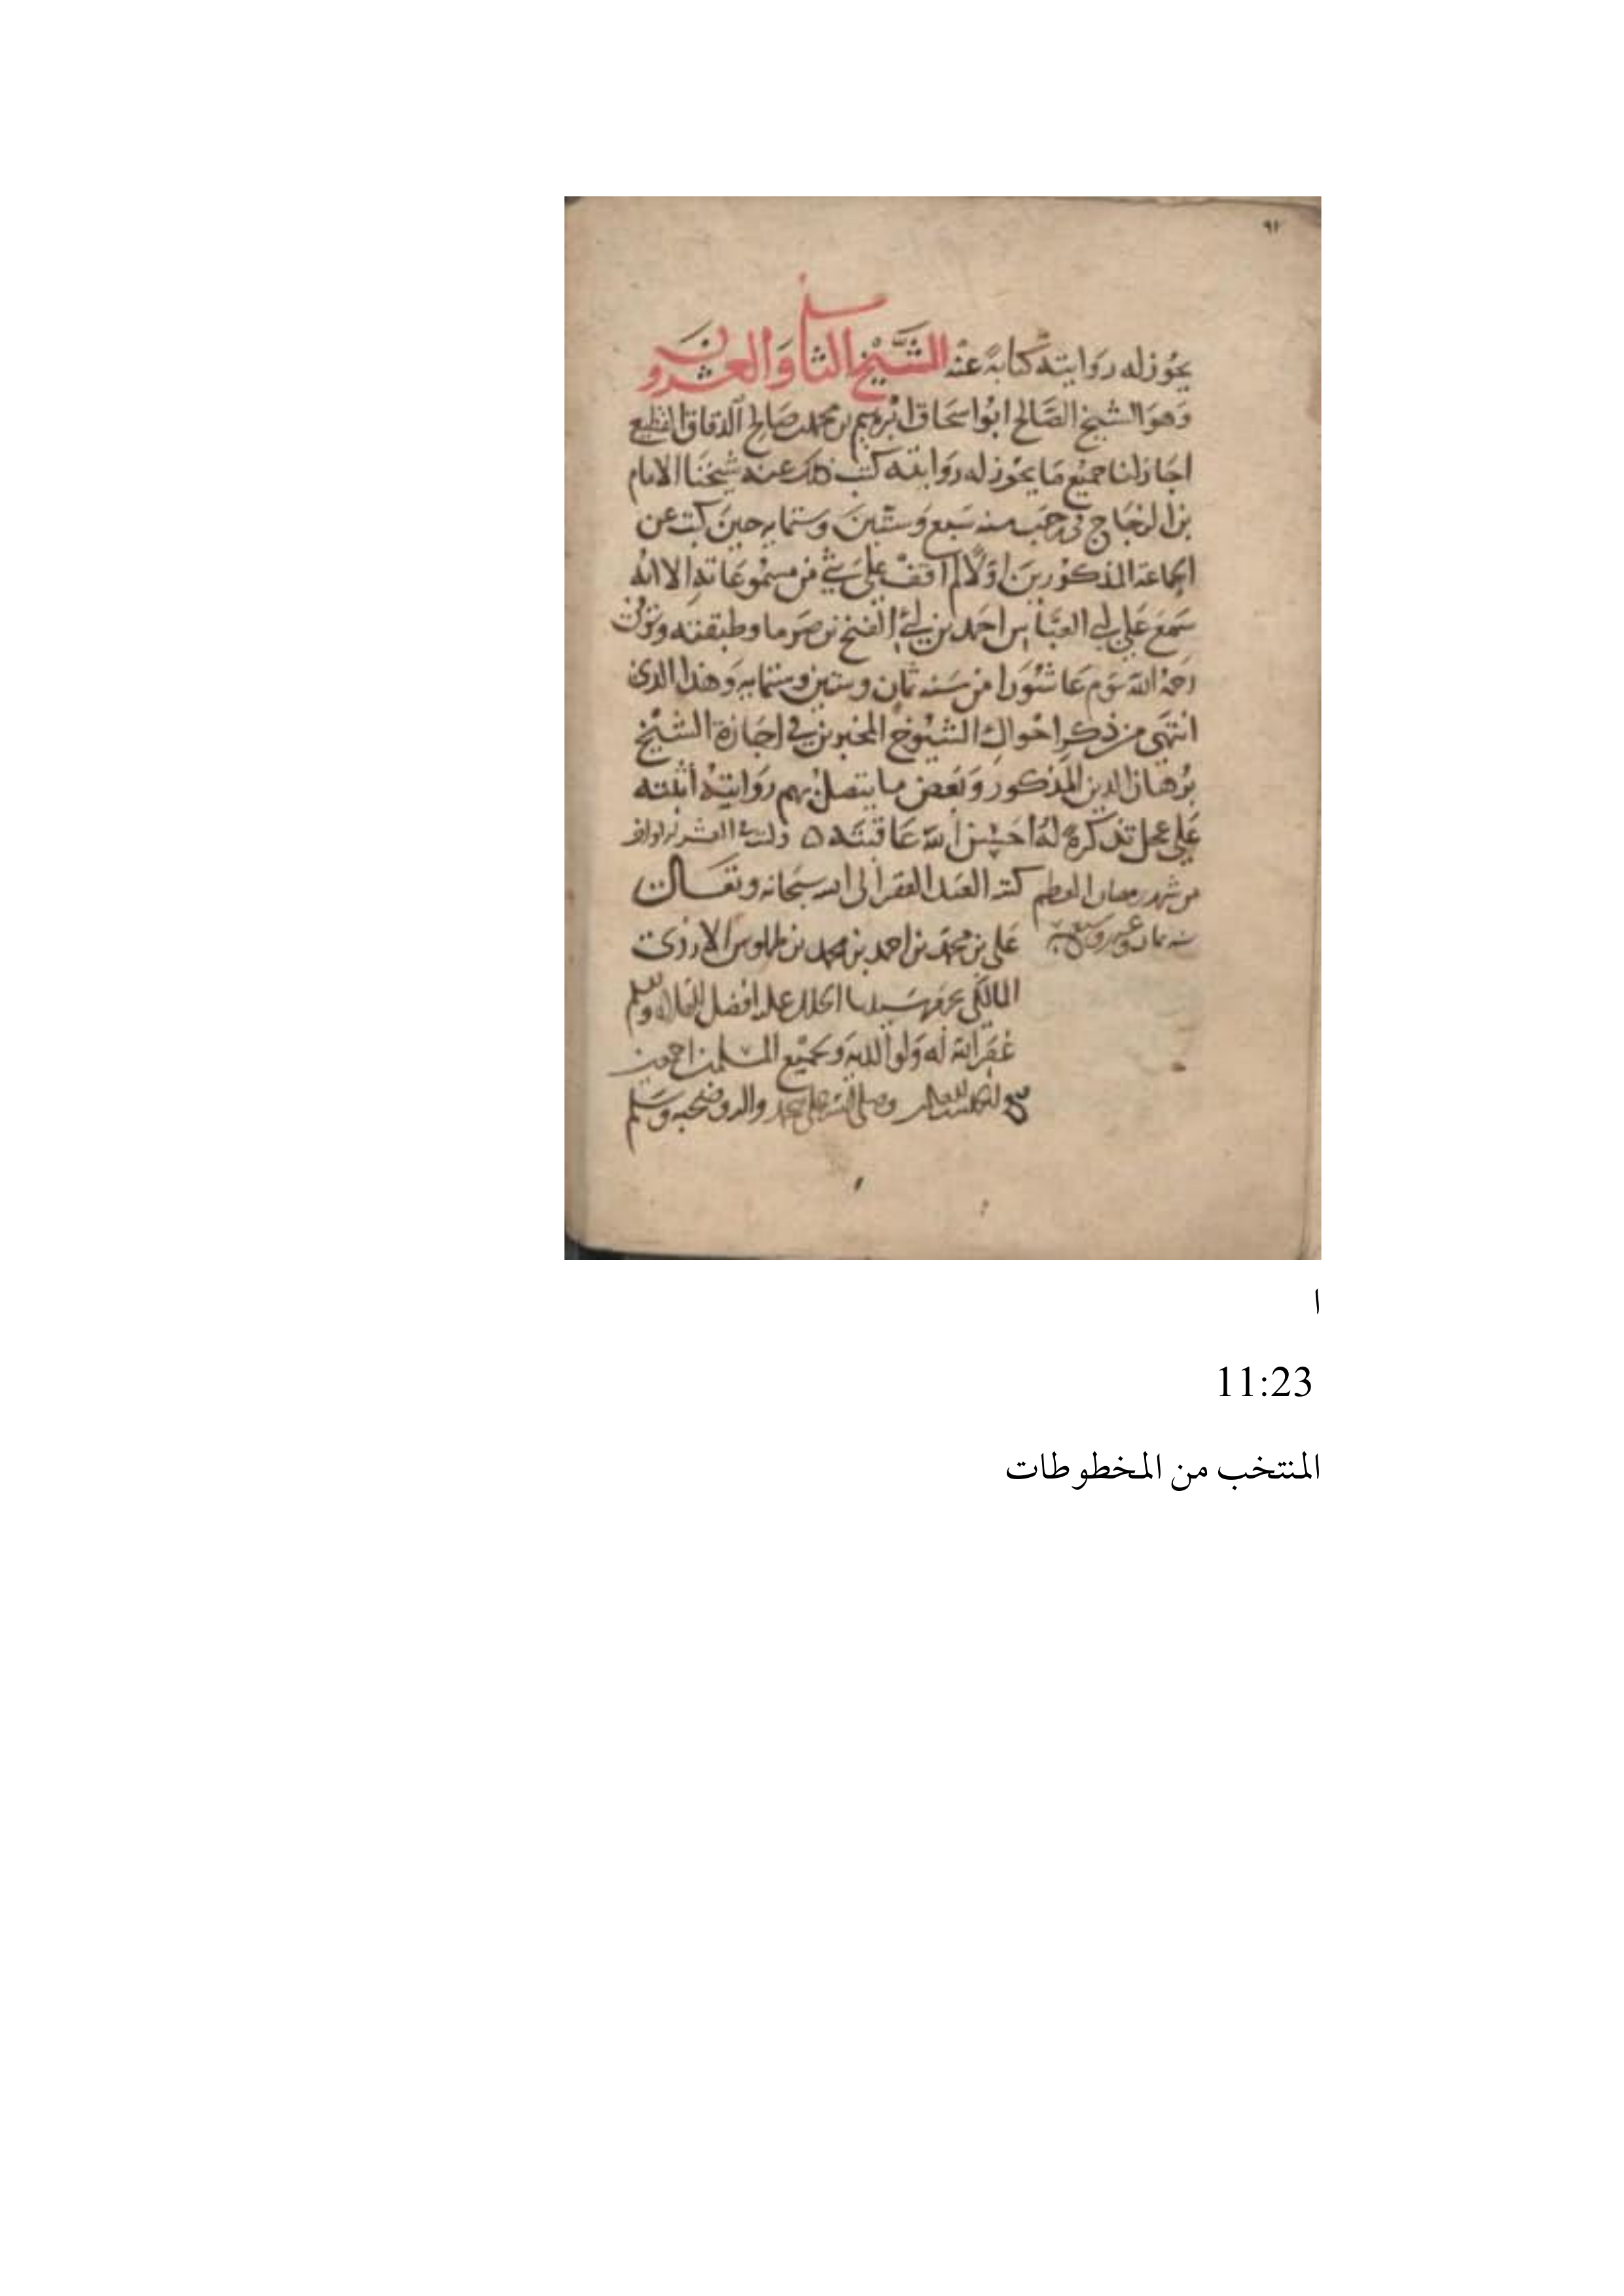 ٩٢
يجوز له روايته كتابة عنه الشيخ الثاني والعشرون
وهو الشيخ الصالح ابو اسحاق ابرهيم بن محمد بن صالح الدقاق القطيعي
اجاز لنا جميع ما يجوز له روايته كتب ذلك عنه شيخنا الامام
بن الزجاج في رجب سنه سبع وستين وستمايه حين كتب عن
الجماعة المذكورين اولا لم اقف على شئ من مسموعاته الا انه
سمع على ابي العباس احمد بن ابي الفتح بن صرما وطبقته وتوفى
رحمه الله يوم عاشورا من سنه ثمان وستين وستمايه وهذا الذي
انتهى من ذكر احوال الشيوخ المخبرين في اجازة الشيخ
برهان الدين المذكور وبعض ما يتصل بهم روايته أثبته
على عجل تذكرة له احسن الله عاقبته ٥ وذلك في العشر الاواخر
من شهر رمضان المعظم كتبه العبد الفقير الى الله سبحانه وتعالى
سنه ثمان وعشرين علي بن محمد بن احمد بن محمد بن الازدي
المالكي افضل وسلم
غفر الله له ولوالديه ولجميع المسلمين اجمعين
وصلى الله على محمد واله وصحبه وسلم
ا
11:23
المنتخب من المخطوطات